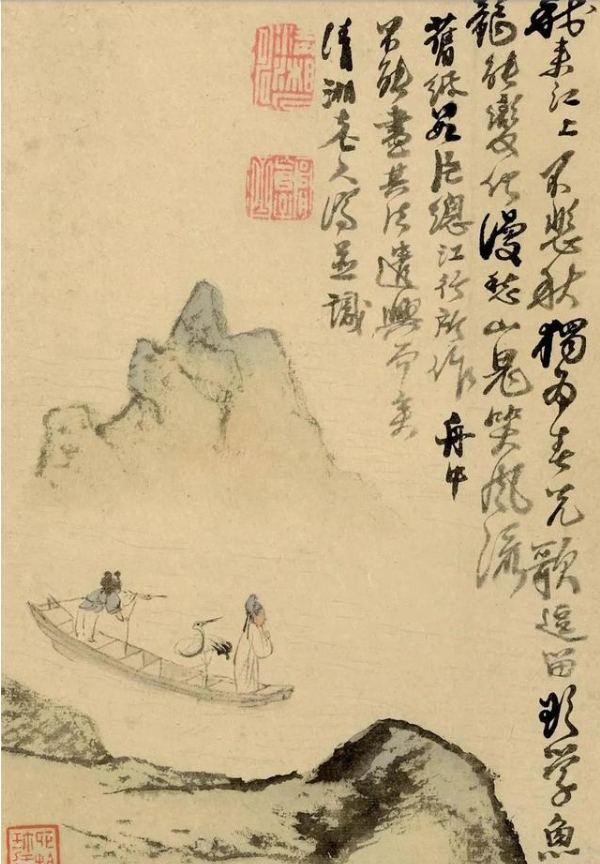 來江上不悲秋獨為春光歌逗留欲學魚
龍能變化漫愁山鬼笑風流
舊紙片總江行所作舟中
不能盡其法遣興而矣
清湘老人濟並識